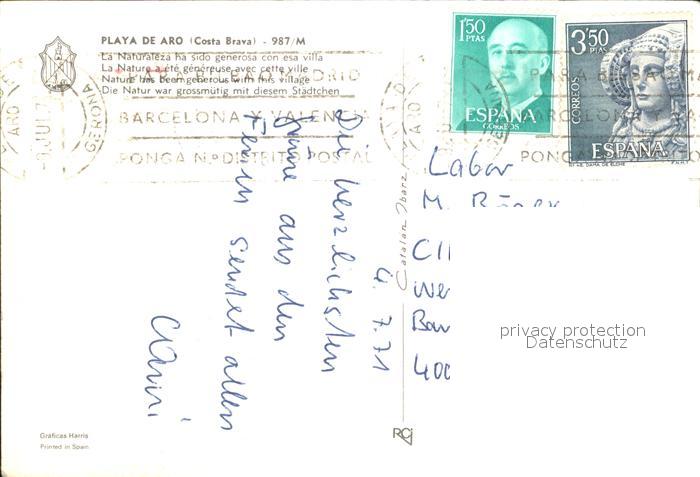 PLAYA DE ARO (Costa Brava) - 987/M
La Naturaleza ha sido generosa con esa villa
La Nature a été généreuse avec cette ville
Nature has been generous with this village
Die Natur war grossmütig mit diesem Städtchen
1'50
PTAS
ESPAÑA
CORREOS
3'50
PTAS
CORREOS
ESPAÑA
DAMA DE ELCHE
PARA BILBAO MADRID
BARCELONA Y VALENCIA
PONGA N.º DISTRITO POSTAL
GERONA
JUL 7
ARO
PARA BILBAO MA
BARCELONA
PONGA
4.7.71
Die herzlichsten
Grüße aus den
Ferien sendet allen
Labor
M.
We
Bau
400
Catalan Ibarz
privacy protection
Datenschutz
Gráficas Harris
Printed in Spain